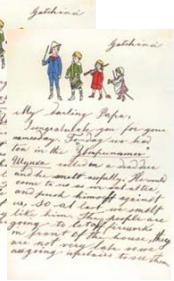 Gatchina
Gatchina
My darling Papa,
I congratulate you for your
namesday. Sunday we had
tea in the
and he smelt awfully. He would
come to us as we sat at tea,
and push himself against
us, so at last we smelt
like him. The people are
going to let off fireworks
in front of the house, they
are not very late, so we
are going upstairs to see them